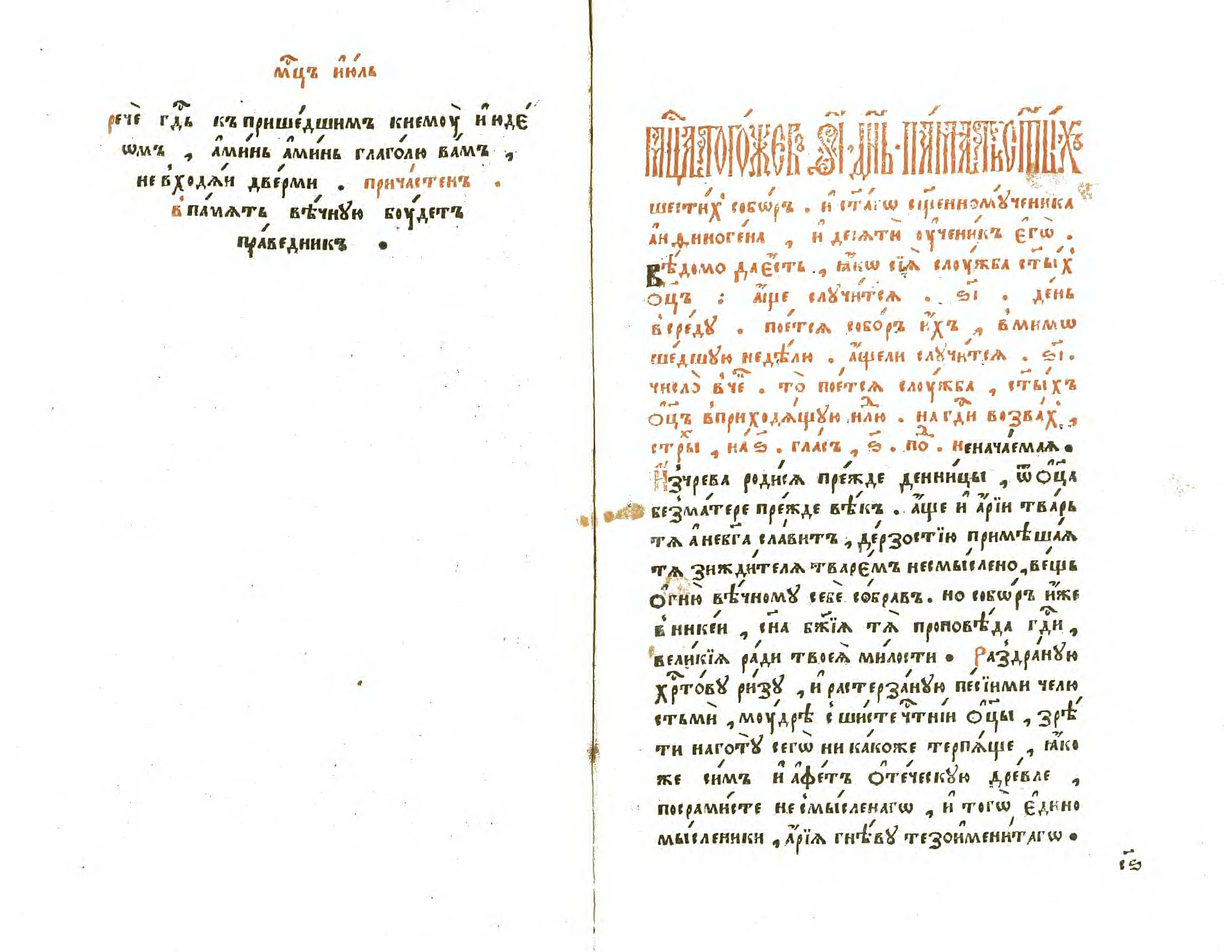 мⷭ҇цъ і҆ю́ль
речѐ гдⷭ҇ь къ прише́дшимъ кнемоу̀ и҆юде́
ѡмъ , а҆ми́нь а҆ми́нь глаго́лю ва́мъ ,
не вхо́дѧи две́рми . прича́стенъ .
в па́мѧть вѣ́чную боу́детъ
пра́ведникъ .
мⷭ҇ца того́же в ѕ҃і днь па́мѧть ст҃ы́хъ
шести́хъ собѡ́ръ . и҆ ст҃а́гѡ сщ҃енномꙋ́ченика
а҆ндиноге́на , и҆ десѧти оу҆ченикъ є҆гѡ̀ .
Вѣ́домо да є҆́сть , ꙗ҆́кѡ сїѧ̀ слоу́жба ст҃ы́хъ
ѻ҆ц҃ъ : а҆́ще слꙋчи́тсѧ . ѕ҃і . де́нь
в сре́дꙋ . пое́тсѧ собо́ръ и҆́хъ , в мимѡ
ше́дшꙋю недѣ́лю . а҆́щели слꙋчи́тсѧ . ѕ҃і .
число̀ в че . то̀ пое́тсѧ слоу́жба , ст҃ы́хъ
ѻ҆ц҃ъ в приходѧ́щꙋю нлⷣю . на гдⷭ҇и возва́х ,
стры , на ѕ҃ . гла́съ , ѕ҃ . поⷣ . неначае́маѧ .
И҆зчрева роди́сѧ пре́жде денни́цы , ѿ ѻ҆ц҃а
без ма́тере пре́жде вѣ́къ . а҆́ще и҆ а҆́рїи тва́рь
тѧ а҆ не бг҃а сла́витъ , де́рзостїю примѣша́ѧ
тѧ̀ зижди́телѧ тваре́мъ несмы́слено , ве́щь
ѻ҆гню̀ вѣ́чномꙋ себѐ собра́въ . но собѡ́ръ и҆́же
в нике́и , сн҃а бж҃їѧ тѧ̀ проповѣ́да гдⷭ҇и ,
вели́кїѧ ра́ди твоеѧ̀ ми́лости . Раздра́нꙋю
хрⷭ҇то́вꙋ ри́зꙋ , и҆ растерза́нꙋю пе́сїими челю
стьмѝ , моу́дрѣ сшисте чⷭ҇тні́и ѻ҆ц҃ы , зрѣ́
ти наготꙋ̀ сегѡ̀ ни ка́коже терпѧ́ще , ꙗ҆́ко
же си́мъ и҆ а҆фе́тъ ѻ҆те́ческꙋю дре́вле ,
посрами́сте несмы́сленагѡ , и҆ тогѡ̀ є҆ди́но
мы́сленики , а҆́рїѧ гнѣ́вꙋ тезоимени́тагѡ .
сѕ҃